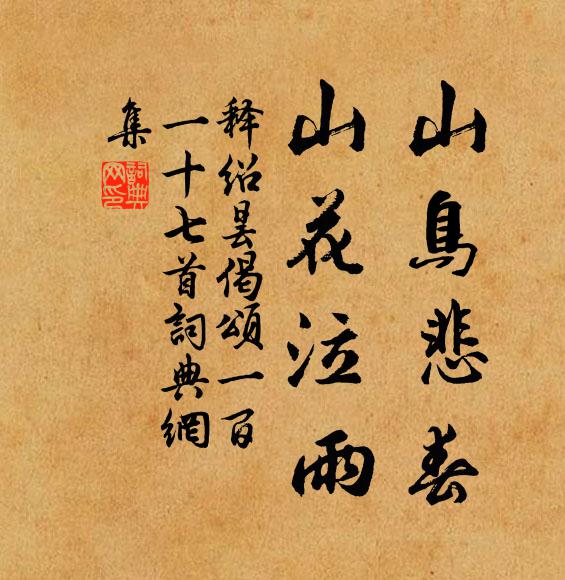 山鳥悲春
山花泣雨
释绍昙偈頌一百
一十七首詞典網
集
詞典
网印